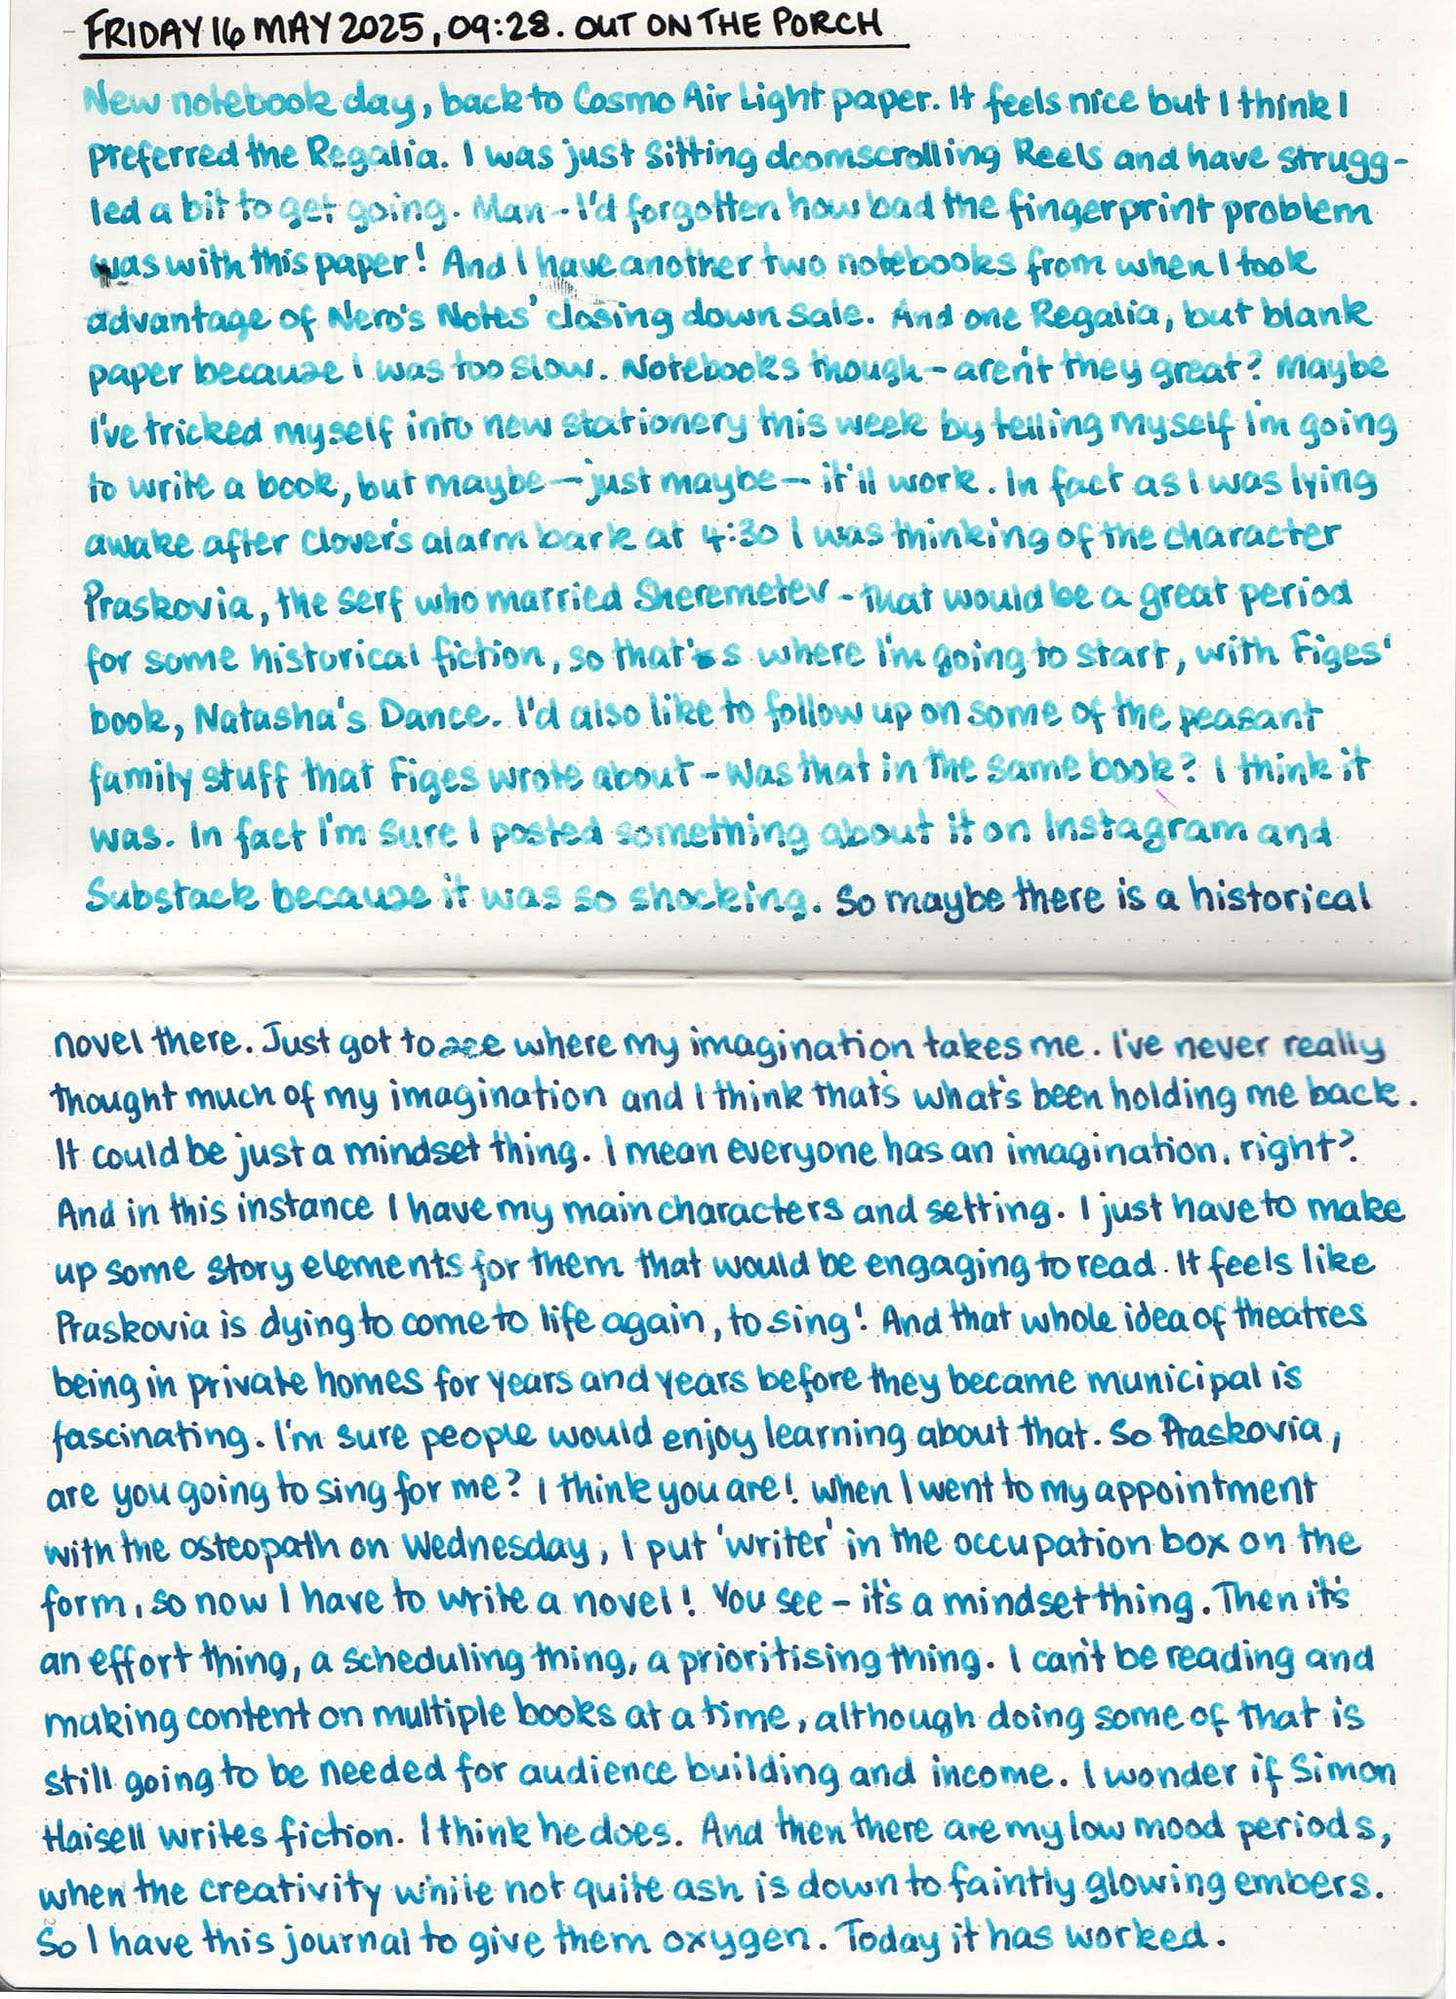 - FRIDAY 16 MAY 2025, 09:28. OUT ON THE PORCH
New notebook day, back to Cosmo Air Light paper. It feels nice but I think I
preferred the Regalia. I was just sitting doomscrolling Reels and have strugg-
led a bit to get going. Man - I'd forgotten how bad the fingerprint problem
was with this paper! And I have another two notebooks from when I took
advantage of Nero's Notes' closing down sale. And one Regalia, but blank
paper because I was too slow. Notebooks though - aren't they great? Maybe
I've tricked myself into new stationery this week by telling myself I'm going
to write a book, but maybe - just maybe - it'll work. In fact as I was lying
awake after Clover's alarm bark at 4:30 I was thinking of the character
Praskovia, the serf who married Sheremetev - that would be a great period
for some historical fiction, so that's where I'm going to start, with Figes'
book, Natasha's Dance. I'd also like to follow up on some of the peasant
family stuff that Figes wrote about - was that in the same book? I think it
was. In fact I'm sure I posted something about it on Instagram and
Substack because it was so shocking. So maybe there is a historical
novel there. Just got to see where my imagination takes me. I've never really
thought much of my imagination and I think that's what's been holding me back.
It could be just a mindset thing. I mean everyone has an imagination, right?
And in this instance I have my main characters and setting. I just have to make
up some story elements for them that would be engaging to read. It feels like
Praskovia is dying to come to life again, to sing! And that whole idea of theatres
being in private homes for years and years before they became municipal is
fascinating. I'm sure people would enjoy learning about that. So Praskovia,
are you going to sing for me? I think you are! When I went to my appointment
with the osteopath on Wednesday, I put 'writer' in the occupation box on the
form, so now I have to write a novel! You see - it's a mindset thing. Then it's
an effort thing, a scheduling thing, a prioritising thing. I can't be reading and
making content on multiple books at a time, although doing some of that is
still going to be needed for audience building and income. I wonder if Simon
Haisell writes fiction. I think he does. And then there are my low mood periods,
when the creativity while not quite ash is down to faintly glowing embers.
So I have this journal to give them oxygen. Today it has worked.